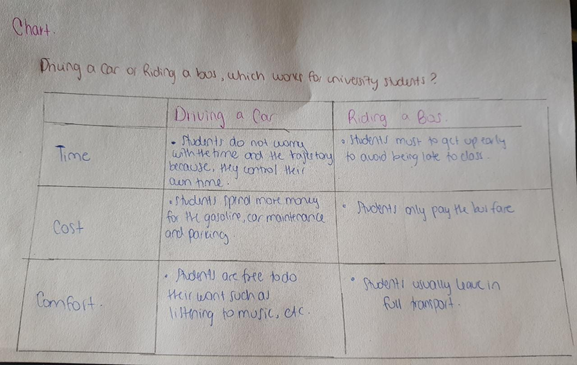 Chart.
Driving a Car or Riding a bus, which works for university students?
Driving a Car
Riding a Bus
Time
• Students do not worry
with the time and the trajectory
because, they control their
own time.
• Students must to get up early
to avoid being late to class.
Cost
• Students spend more money
for the gasoline, car maintenance
and parking.
• Students only pay the bus fare
Comfort.
• Students are free to do
their want such as
listening to music, etc.
• Students usually leave in
full transport.